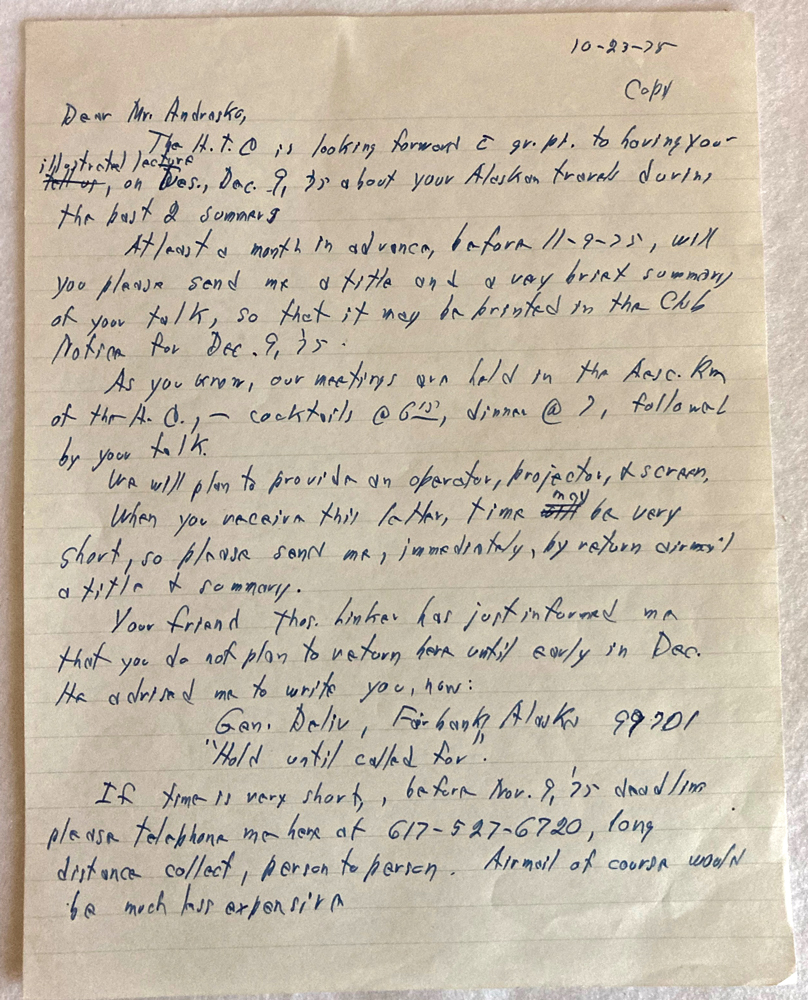 10-23-75
Copy
Dear Mr. Androsko,
The H.T.C is looking forward c̄ gr. pl. to having your
illustrated lecture
tell us, on Tues., Dec. 9, '75 about your Alaskan travels during
the past 2 summers
At least a month in advance, before 11-9-75, will
you please send me a title and a very brief summary
of your talk, so that it may be printed in the Club
Notice for Dec. 9, '75.
As you know, our meetings are held in the Aesc. Rm
of the H. C., — cocktails @ 6 15, dinner @ 7, followed
by your talk.
We will plan to provide an operator, projector, & screen.
may
When you receive this letter, time will be very
short, so please send me, immediately, by return airmail
a title & summary.
Your friend Thos. Linker has just informed me
that you do not plan to return here until early in Dec.
He advised me to write you, now:
Gen. Deliv, Fairbanks, Alaska 99701
"Hold until called for".
If time is very short, before Nov. 9, '75 deadline
please telephone me here at 617-527-6720, long
distance collect, person to person. Airmail of course would
be much less expensive